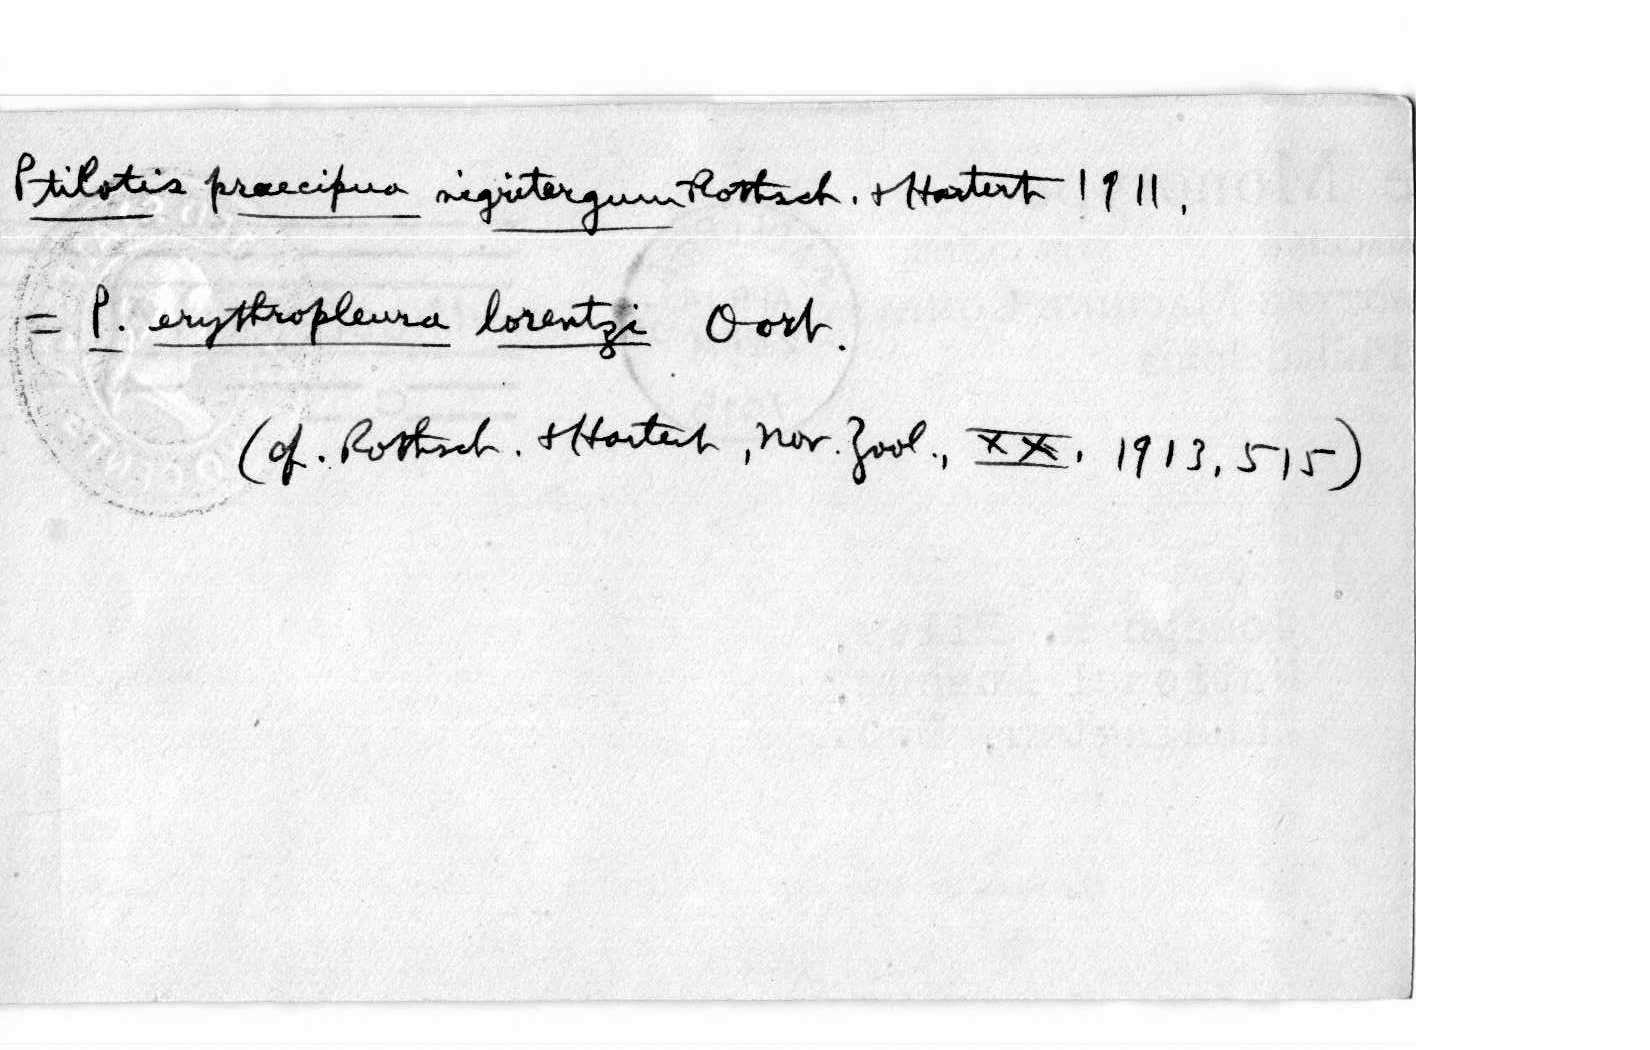 Ptilotis praecipua nigritergum Rothsch. & Hartert 1911.
= P. erythropleura lorentzi Oort.
(cf. Rothsch. & Hartert, Nov. Zool., XX, 1913, 515)